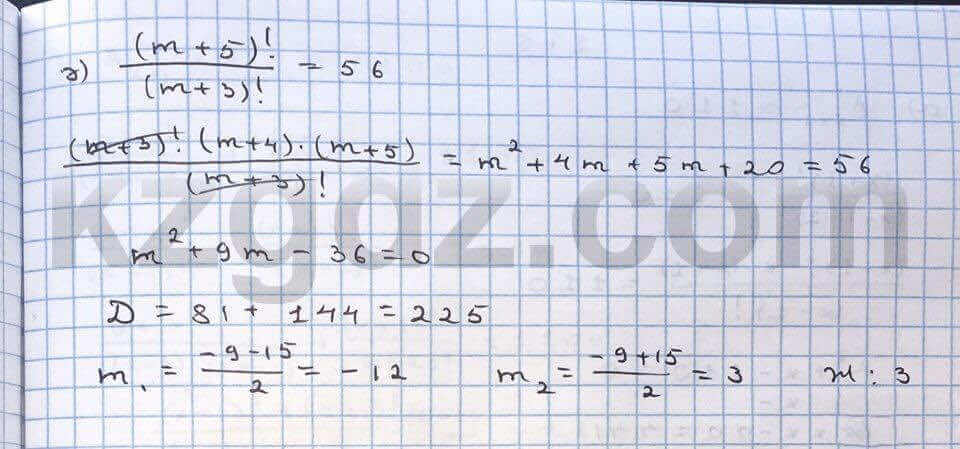 г) (m+5)! / (m+3)! = 56
(m+3)! (m+4)·(m+5) / (m+3)! = m² + 4m + 5m + 20 = 56
m² + 9m - 36 = 0
D = 81 + 144 = 225
m₁ = -9-15 / 2 = -12 m₂ = -9+15 / 2 = 3 : 3
kzgdz.com